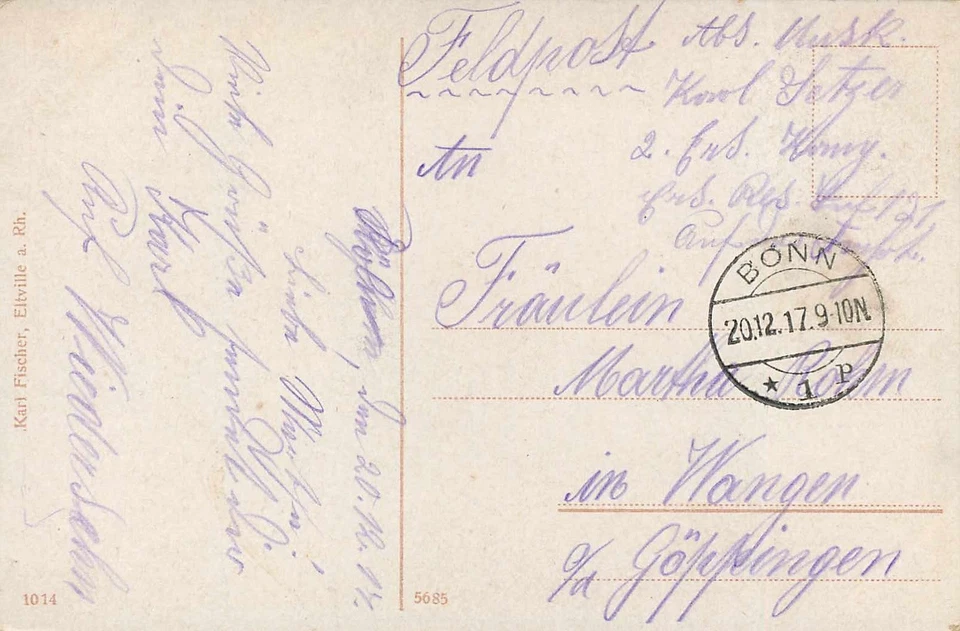 Feldpost
Abs. Musk.
Karl Setzer
2. Ers. Komp.
Ers. Res.
An
Fräulein
Martha
in Wangen
o/a Göppingen
BONN
20.12.17.9-10N.
* 1 P
den 20.12.17
Liebe Martha!
Viele Grüße sendet Dir
Dein
Karl
Auf Wiedersehn
Karl Fischer, Eltville a. Rh.
1014
5685